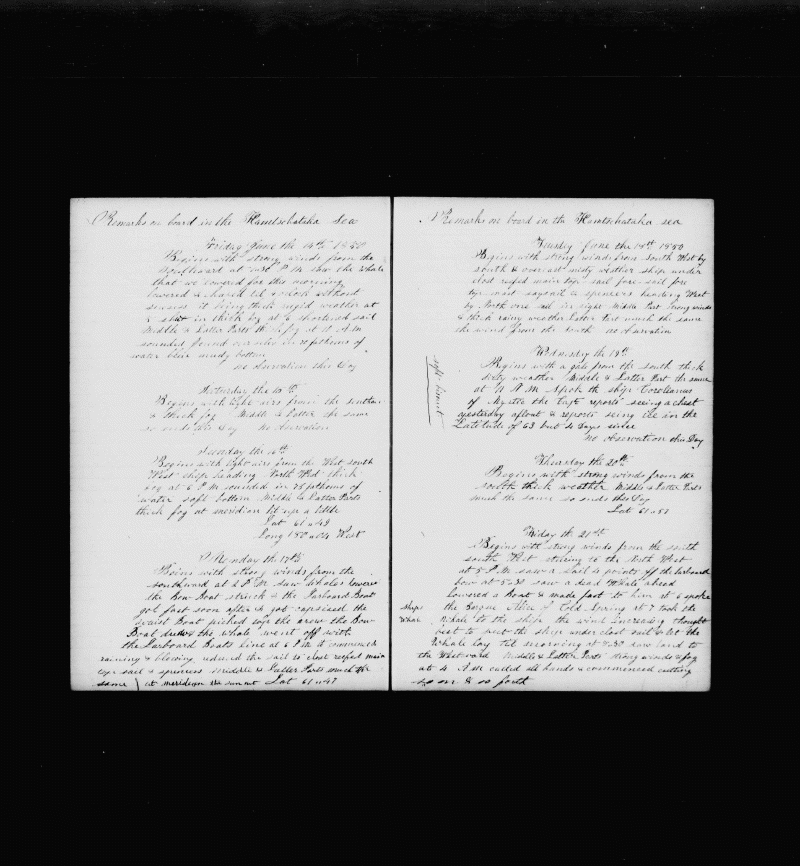 Remarks on board in the Kamtschataka Sea
Friday June the 14th 1850
Begins with strong winds from the
Southward at P M saw the whale
that we lowered for this morning
lowered & chased til o clock without
success it being thick rugid weather at
shut in thick fog at 6 shortened sail
Middle & Latter Parts thick fog at 11 A M
sounded found in fathoms of
water blue mudy bottom
no Observation this Day
Saturday the 15th
Begins with light airs from the
& thick fog Middle & Latter the same
so ends this Day no Observation
Sunday the 16th
Begins with light airs from the West south
West ship heading North West thick
fog at 6 P M sounded in 28 fathoms of
water soft bottom Middle & Latter Parts
thick fog at meridian lit up a little
Lat 61 " 49
Long 180 " 04 West
Monday the 17th
Begins with strong winds from the
southward at 2 P M saw Whales lowered
the Bow Boat struck & the Larboard Boat
got fast soon after & got capsised the
Waist Boat picked up the crew the Bow
Boat & the whale went off with
the Larboard Boats Line at 6 P M it commenced
raining & blowing reduced the sail to close reefed main
top sail & spencers Middle & Latter Parts much the
same at meridian the sun out Lat 61 " 47
Remarks on board in the Kamtschataka sea
Tuesday June the 18th 1850
Begins with strong winds from South West by
South & overcast misty weather ship under
close reefed main top sail fore sail fore
top mast staysail & spencers heading West
by North one sail in sight Middle Part strong winds
& thick rainy weather Latter Part much the same
the wind from the South no Observation
Wednesday the 19th
Begins with a gale from the south thick
dirty weather Middle & Latter Part the same
at 11 A M spoke the ship Coriolianus
of Mystic the Capt reports seeing a chest
yesterday afloat & reports seing ice in the
Latitude of 63 but 4 days since
no Observation this Day
Thursday the 20th
Begins with strong winds from the
south thick weather Middle & Latter Parts
much the same so ends this Day
Lat 61 " 51
Friday the 21st
Begins with strong winds from the south
south West to the North West
at 5 P M saw a sail 4 points off the larboard
bow at 5 " 30 saw a dead Whale ahead
Lowered a Boat & made fast to him at 6 spoke
Ships
Whale
the Barque Alice of Cold Spring at 7 took the
Whale to the ship the wind increasing thought
best to put the ship under close sail & let the
Whale lay til morning at 8 " 30 saw land to
the Westward Middle & Latter Parts strong winds & fog
at 4 A M called all hands & commenced cutting
so on & so forth